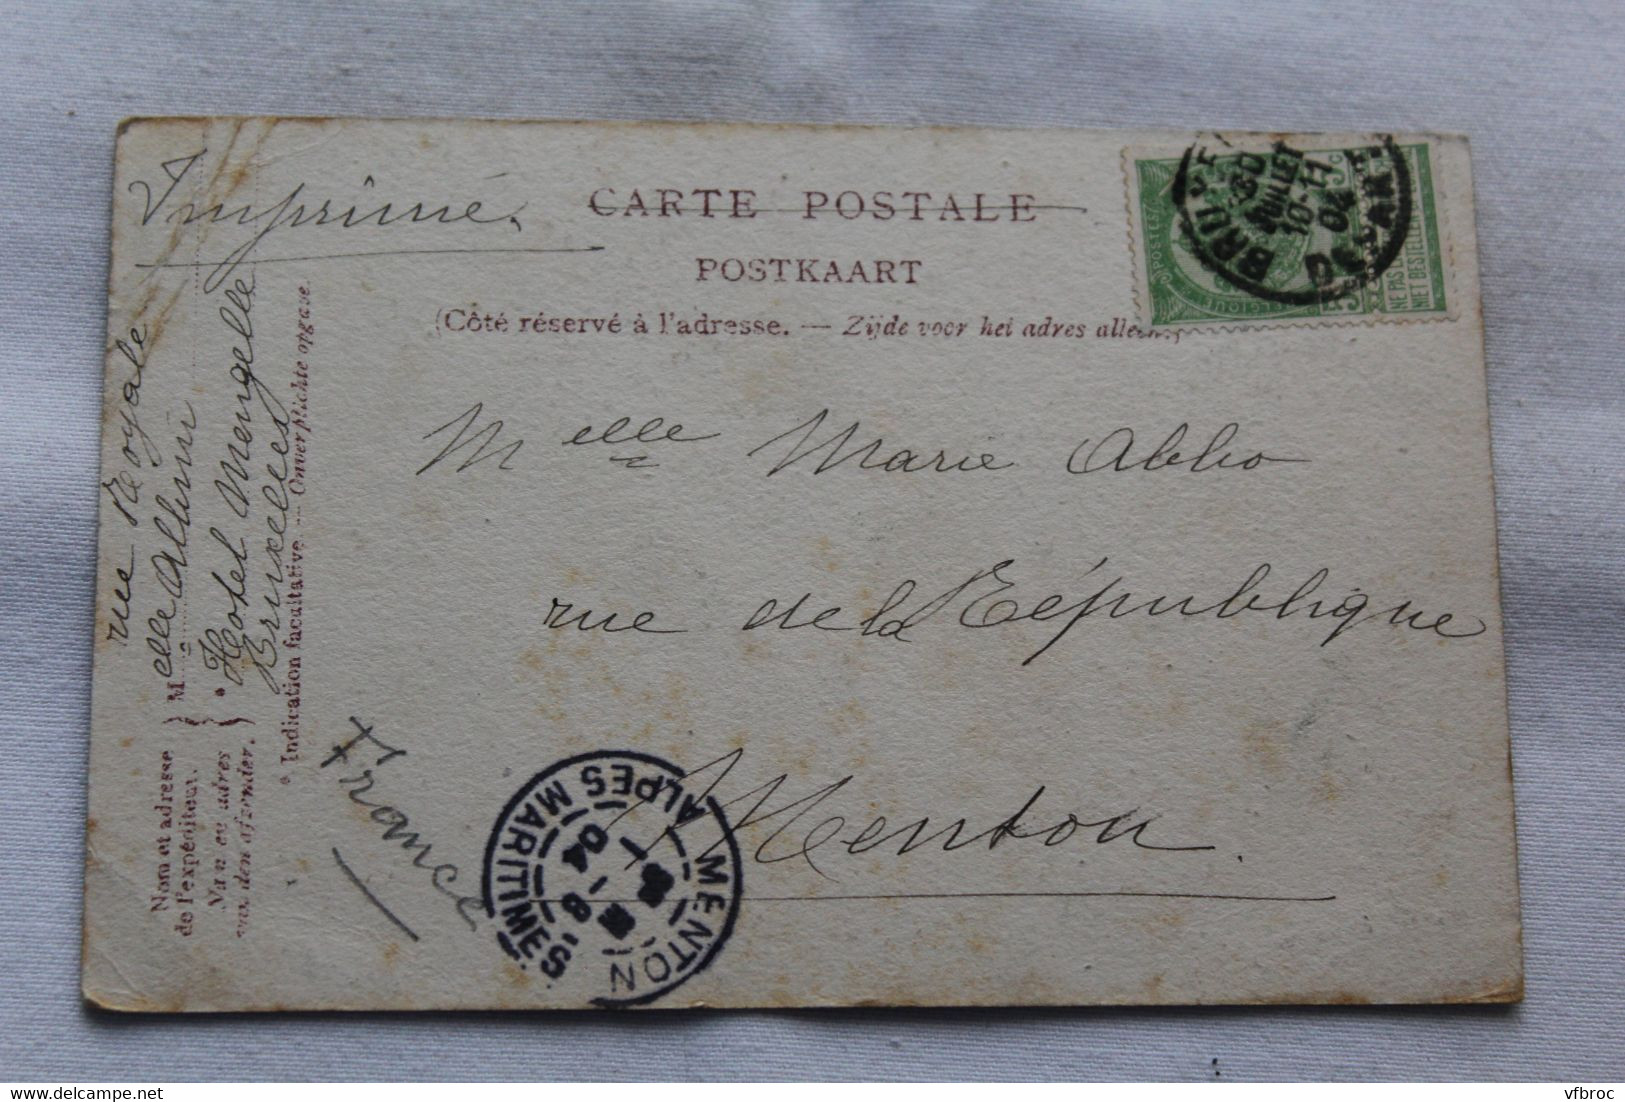 Imprimé.
CARTE POSTALE
POSTKAART
(Côté réservé à l'adresse. — Zijde voor het adres alleen.)
POSTES
BELGIQUE
5c
NE PAS
NIET BESTELLEN
30
JUILLET
10-11
04
DÉPART
Melle Marie Abbo
rue de la République
Menton.
France
MENTON
ALPES MARITIMES
8
04
rue Royale
elle Albini
Hotel Mengelle
Bruxelles
Nom et adresse
de l'expéditeur.
Van en adres
van den afzender.
M
* Indication facultative — Onverplichte opgave.
vfbroc